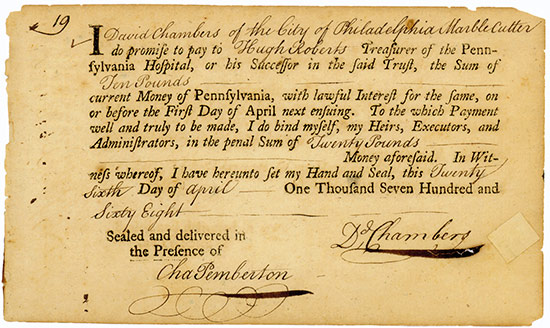 19
I David Chambers of the City of Philadelphia Marble Cutter
do promise to pay to Hugh Roberts Treasurer of the Penn-
ſylvania Hoſpital, or his Succeſſor in the ſaid Truſt, the Sum of
Ten Pounds
current Money of Pennſylvania, with lawful Intereſt for the ſame, on
or before the Firſt Day of April next enſuing. To the which Payment
well and truly to be made, I do bind myſelf, my Heirs, Executors, and
Adminiſtrators, in the penal Sum of Twenty Pounds
Money aforeſaid. In Wit-
neſs whereof, I have hereunto ſet my Hand and Seal, this Twenty
Sixth Day of April One Thouſand Seven Hundred and
Sixty Eight
Sealed and delivered in
the Preſence of
Dd. Chambers
Cha Pemberton